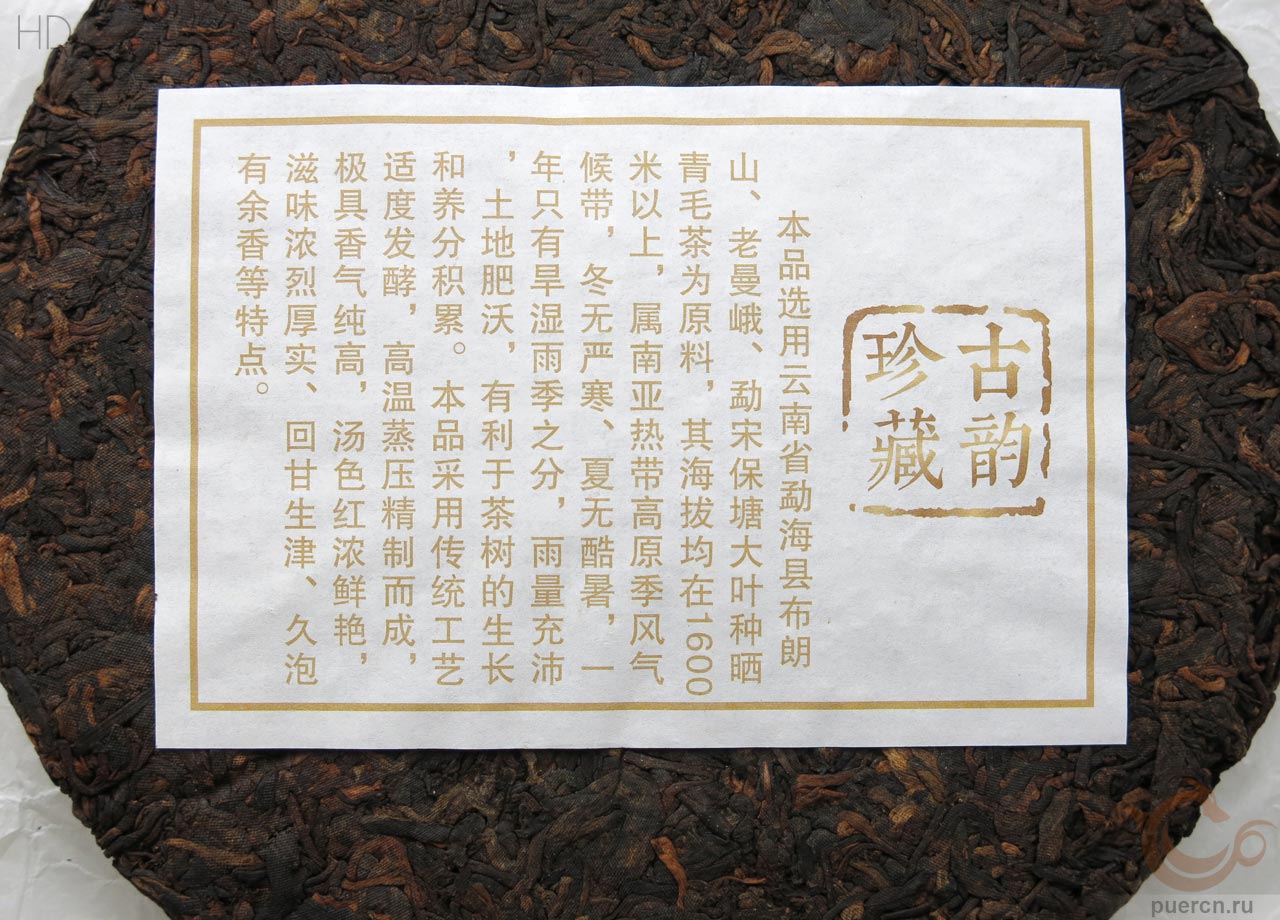 HD
古韵
珍藏
本品选用云南省勐海县布朗
山、老曼峨、勐宋保塘大叶种晒
青毛茶为原料，其海拔均在1600
米以上，属南亚热带高原季风气
候带，冬无严寒、夏无酷暑，一
年只有旱湿雨季之分，雨量充沛
，土地肥沃，有利于茶树的生长
和养分积累。本品采用传统工艺
适度发酵，高温蒸压精制而成，
极具香气纯高，汤色红浓鲜艳，
滋味浓烈厚实、回甘生津、久泡
有余香等特点。
puercn.ru